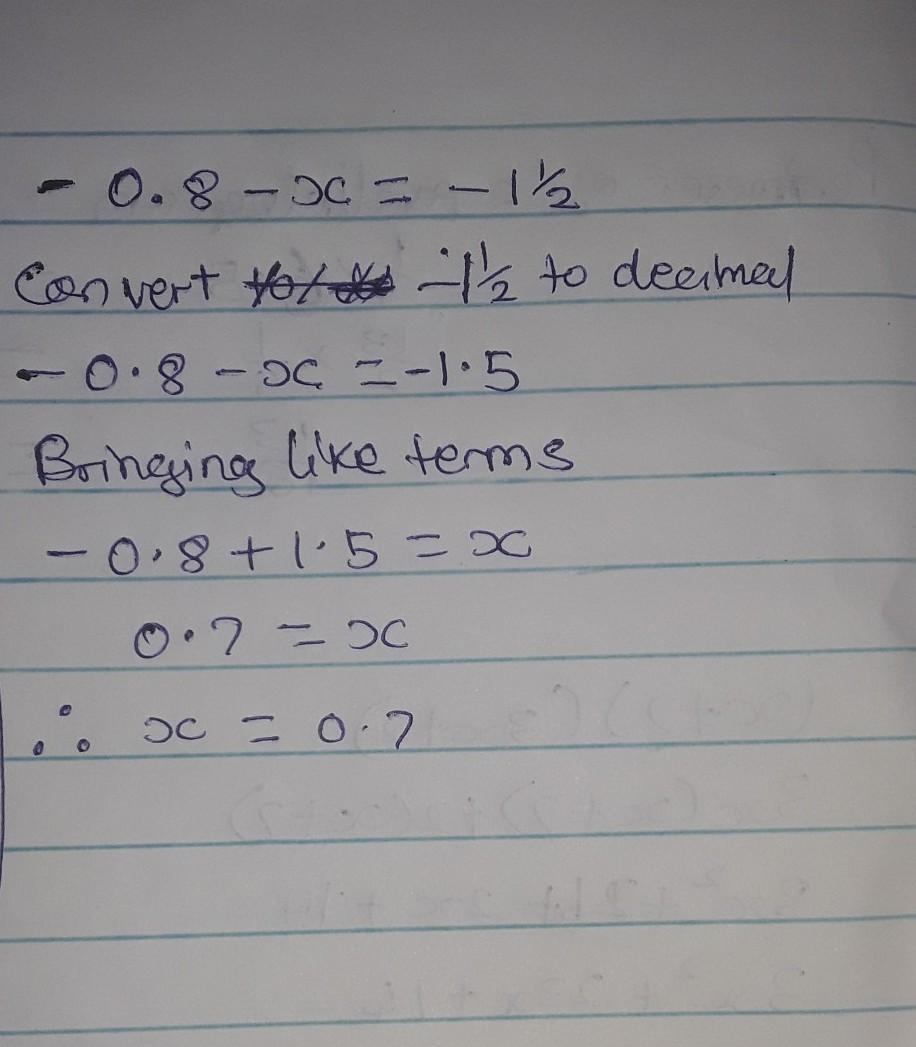 - 0.8 - x = - 1 ½
Convert -1½ to decimal
- 0.8 - x = -1.5
Bringing like terms
- 0.8 + 1.5 = x
0.7 = x
∴ x = 0.7